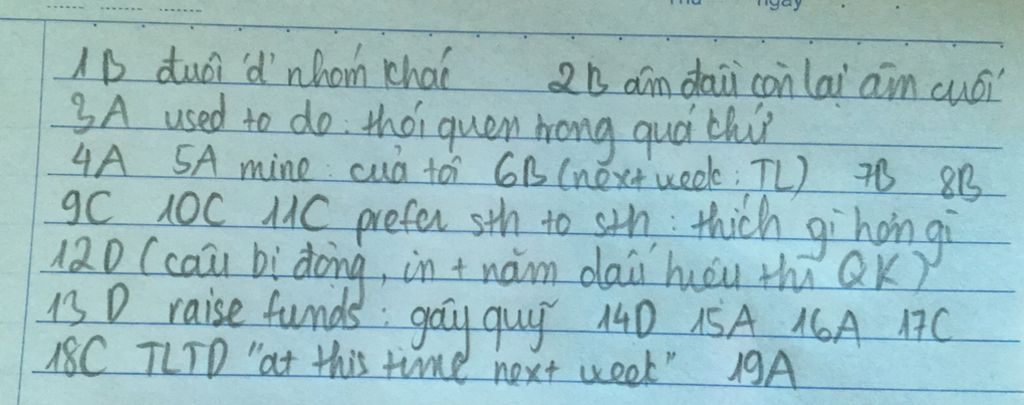 Thứ ngày
1B đuôi 'd' nhóm khác 2B âm đầu còn lại âm cuối
3A used to do: thói quen trong quá khứ
4A 5A mine: của tôi 6B (next week: TL) 7B 8B
9C 10C 11C prefer sth to sth: thích gì hơn gì
12D (câu bị động, in + năm dấu hiệu thì QK)
13D raise funds: gây quỹ 14D 15A 16A 17C
18C TLTD "at this time next week" 19A